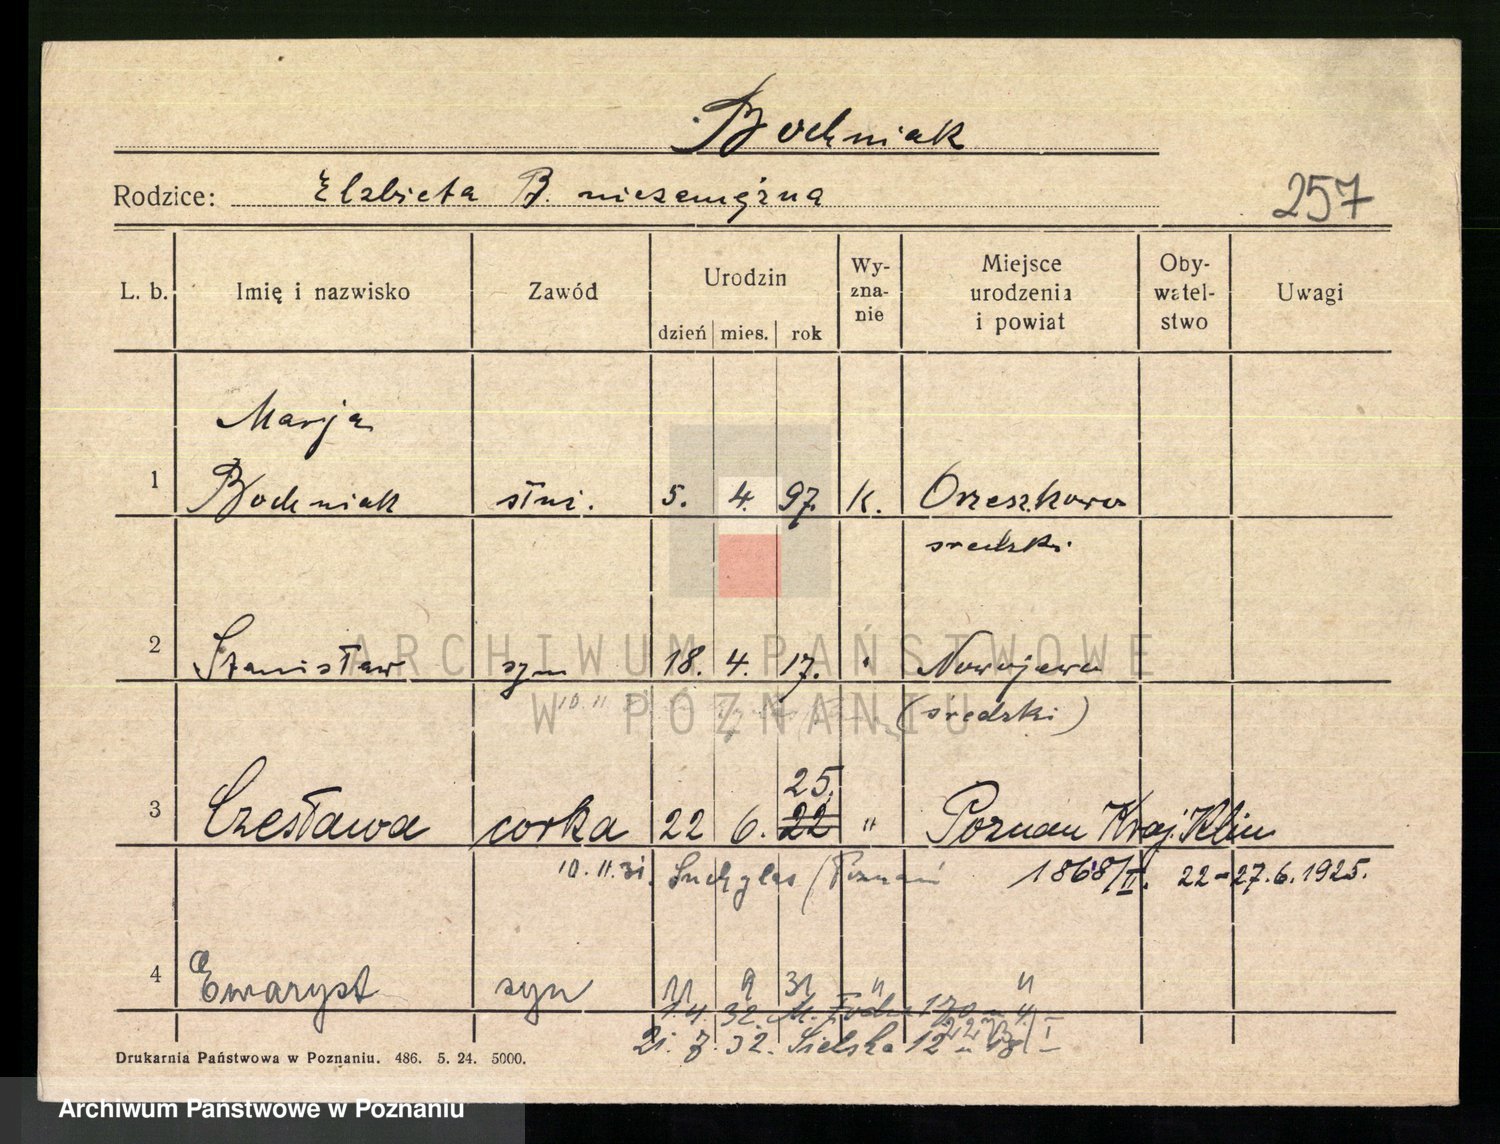 Bochniak
Rodzice: Elzbieta B. niezamężna
257
L. b. Imię i nazwisko Zawód Urodzin dzień mies. rok Wy-zna-nie Miejsce urodzenia i powiat Oby-watel-stwo Uwagi
Marja
1 Bochniak służ. 5. 4. 97. K. Orzeszkowo
średzki
2 Stanisław syn 18. 4. 17. " Nowojewo
10. 11 (średzki)
25.
3 Czesława corka 22 6. 22 " Poznań Kraj. Klin
10. 11. 31. Suchylas / Poznań 1868/II. 22-27.6.1925.
4 Ewaryst syn 11 9 31 " "
1. 4. 32. M. Focha 170 4
21. 7. 32. Sielska 12
Drukarnia Państwowa w Poznaniu. 486. 5. 24. 5000.
ARCHIWUM PAŃSTWOWE
W POZNANIU
Archiwum Państwowe w Poznaniu